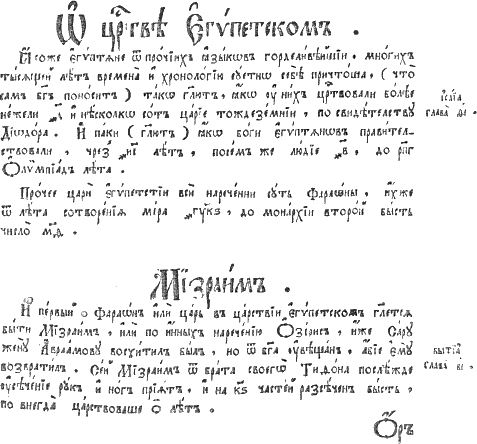 Ѿ црⷭ҇твѣ Єгѵпетскомъ .
И҆ сѹже є҆гѵптѧне ѿ прочїихъ ꙗ҆зыковъ горделивѣйшїи , многихъ
тысѧщей лѣтъ времена и҆ хронологїи суетнѡ себѣ причтоша , ( что
самъ бг҃ъ поноситъ ) такѡ гл҃ютъ , ꙗ҆кѡ ѹ҆ нихъ црⷭ҇твовали болѣе
нежели и҆ нѣколикѡ сотъ царїе тождеземнїи , по свидѣтелству
исаїа
глава
Дїѡдора . И҆ паки ( гл҃ютъ ) ꙗ҆кѡ боги є҆гѵптѧнѡвъ правител-
ствовали , чрез лѣтъ , посемъ же людїе , до рп҃г
Ѻ҆лѵмпїадъ лѣта .
Прочее царїи є҆гѵпетстїи вси нареченни суть Фараѡны , и҆хже
ѿ лѣта сотворенїѧ мира , до монархїи второй бысть
число м҃д .
Мїзраимъ .
И҆ первый ѻ Фараѡнъ и҆ли царь въ царствїи є҆гѵпетскомъ гл҃етсѧ
быти Мїзраим , и҆ли по и҆нныхъ нареченїю Ѻ҆зїрис , и҆же Сару
жену А҆враамову восхитилъ былъ , но ѿ бг҃а ѹ҆вѣщан , а҆бїе є҆му
бытїѧ
возвратил . Сей Мїзраимъ ѿ брата своегѡ Тифона послѣжде
глава в҃і .
ѹ҆сѣченїе рукъ и҆ ногъ прїѧтъ , и҆ на к҃ѕ частей разсѣченъ бысть ,
по внегда царствоваше ѻ҃ лѣтъ .
Ѡ҆ръ